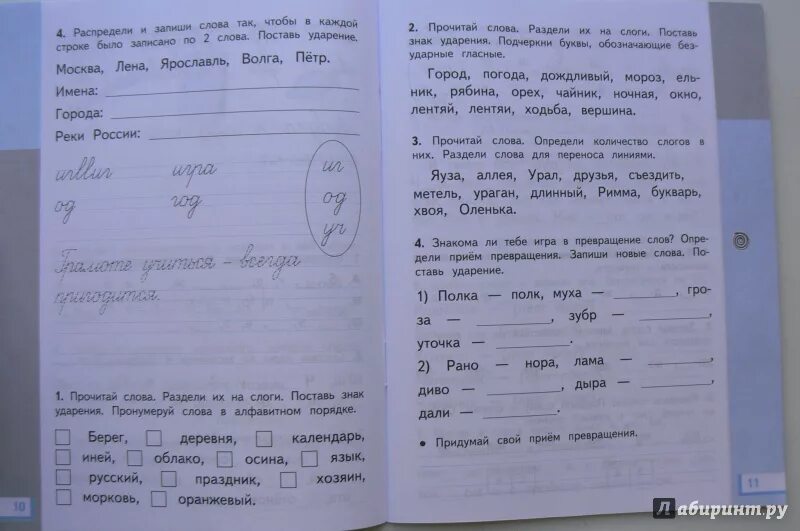 4. Распредели и запиши слова так, чтобы в каждой
строке было записано по 2 слова. Поставь ударение.
Москва, Лена, Ярославль, Волга, Пётр.
Имена:
Города:
Реки России:
игра иг
од год од
уч
Грамоте учиться – всегда
пригодится.
1. Прочитай слова. Раздели их на слоги. Поставь знак
ударения. Пронумеруй слова в алфавитном порядке.
Берег, деревня, календарь,
иней, облако, осина, язык,
русский, праздник, хозяин,
морковь, оранжевый.
10
2. Прочитай слова. Раздели их на слоги. Поставь
знак ударения. Подчеркни буквы, обозначающие без-
ударные гласные.
Город, погода, дождливый, мороз, ель-
ник, рябина, орех, чайник, ночная, окно,
лентяй, лентяи, ходьба, вершина.
3. Прочитай слова. Определи количество слогов в
них. Раздели слова для переноса линиями.
Яуза, аллея, Урал, друзья, съездить,
метель, ураган, длинный, Римма, букварь,
хвоя, Оленька.
4. Знакома ли тебе игра в превращение слов? Опре-
дели приём превращения. Запиши новые слова. По-
ставь ударение.
1) Полка — полк, муха — , гро-
за — , зубр — ,
уточка — .
2) Рано — нора, лама — ,
диво — , дыра — ,
дали — .
• Придумай свой приём превращения.
11
Лабиринт.ру